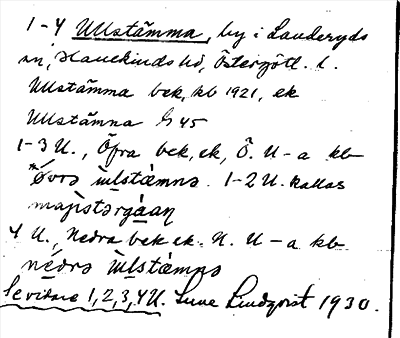 1-4 Ullstämma, by i Landeryds
sn, Hanekinds hd, Östergötl. l.
Ullstämma bek, kb 1921, ek
Ullstämna G 45
1-3 U., Öfra bek, ek, Ö. U-a kb
øvrə ùlstæmnə. 1-2 U. kallas
majistərgáaɳ
4 U., Nedra bek ek. N. U-a kb
nédrə ùlstæmnə
1, 2, 3, 4 U. Sune Lindqvist 1930.